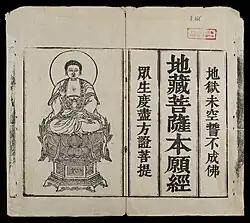 地獄未空誓不成佛
地藏菩薩本願經
眾生度盡方證菩提